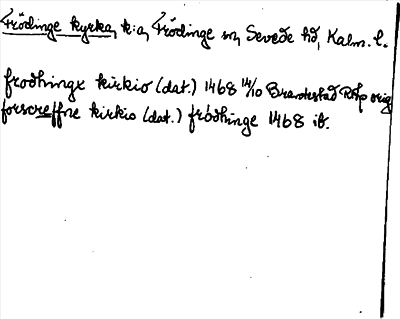 Frödinge kyrka, k:a, Frödinge sn, Sevede hd, Kalm. l.
frodhinge kirkio (dat.) 1468 14/10 RAp orig
forscreffne kirkio (dat.) frödhinge 1468 ib.